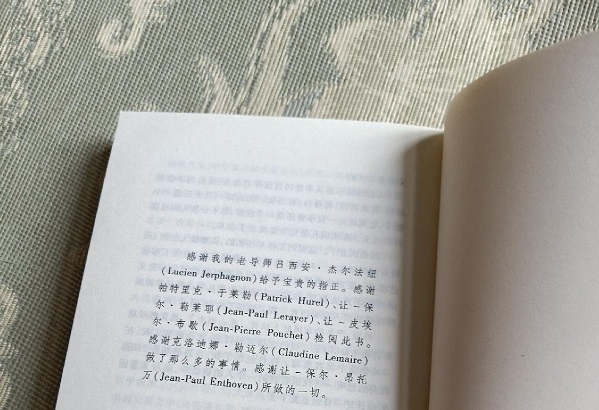 感谢我的老导师吕西安·杰尔法纽
(Lucien Jerphagnon)给予宝贵的指正。感谢
帕特里克·于莱勒(Patrick Hurel)、让-保
尔·勒莱耶(Jean-Paul Lerayer)、让-皮埃
尔·布歇(Jean-Pierre Pouchet)检阅此书。
感谢克洛迪娜·勒迈尔(Claudine Lemaire)
做了那么多的事情。感谢让-保尔·昂托
万(Jean-Paul Enthoven)所做的一切。